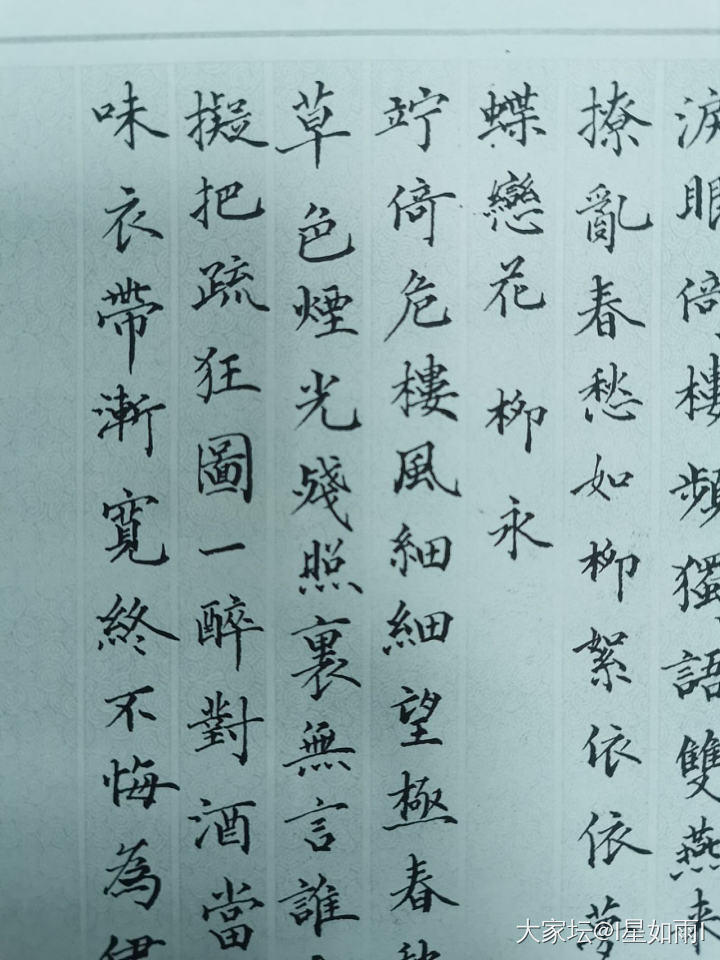 淚眼倚樓頻獨語雙燕来
撩亂春愁如柳絮依依夢
蝶戀花 柳永
竚倚危樓風細細望極春愁
草色煙光殘照裏無言誰
擬把疏狂圖一醉對酒當
味衣帶漸寬終不悔為伊
大家坛@l星如雨l